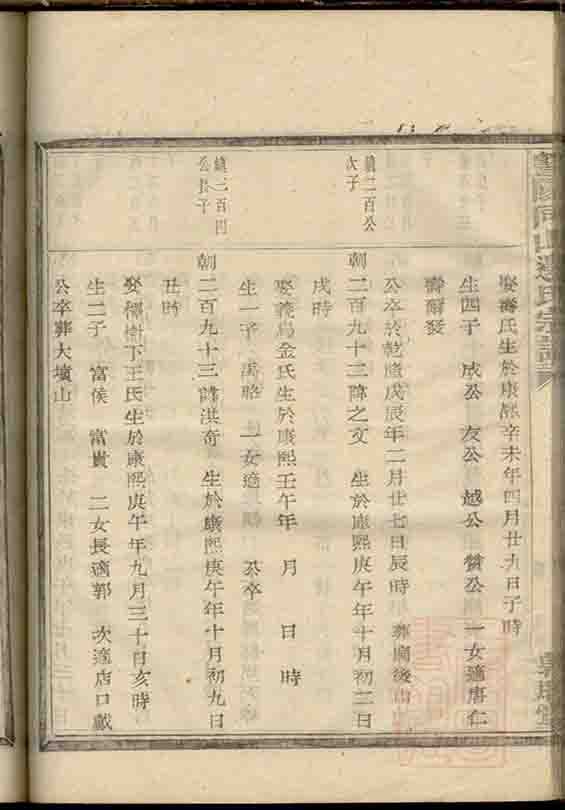 娶壽氏生於康熙辛未年四月廿九日子時
生四子 成公 友公 越公 贊公 一女適唐仁
壽爾發
公卒於乾隆戊辰年二月廿七日辰時 葬廟後山
鎮二百公
次子
朝二百九十二 諱之文 生於康熙庚午年十月初二日
戌時
娶義烏金氏生於康熙壬午年 月 日 時
生一子 一女適 公卒
鎮二百四
公長子
朝二百九十三 諱洪奇 生於康熙庚午年十月初九日
丑時
娶樟樹下王氏生於康熙庚午年九月三十日亥時
生二子 富侯 富貴 二女長適郭 次適店口戴
公卒葬大墳山